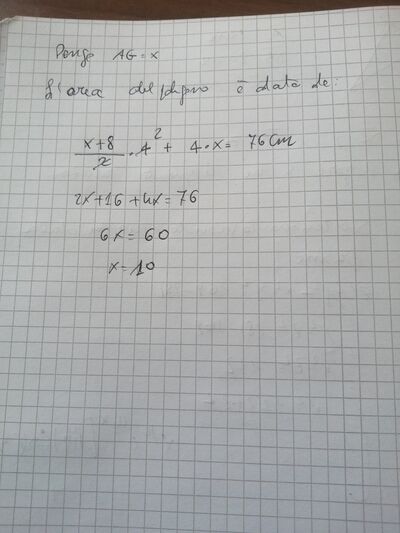 Pongo AG = x
L'area del poligono è data da:
x+8/2 · 4 2 + 4 · x = 76 cm
2x+16+4x=76
6x = 60
x = 10